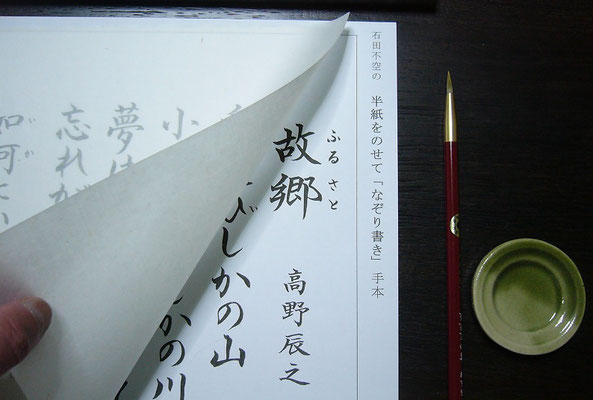 石田不空の 半紙をのせて「なぞり書き」手本
ふるさと
故郷
高野辰之
しかの山
小
かの川
夢は
忘れが
いか
如何に